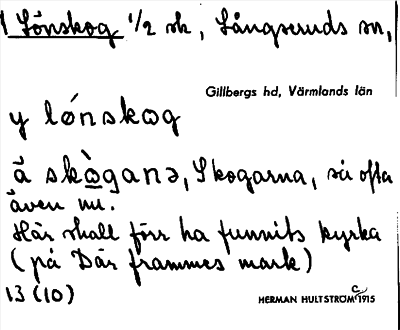 1 Lönskog 1/2 sk, Långseruds sn,
Gillbergs hd, Värmlands län
y lǿnskωg
ǡ skὼganə, Skogarna, så ofta
även nu.
Här skall förr ha funnits kyrka
(på Där frammes mark)
13 (10)
HERMAN HULTSTRÖM C 1915